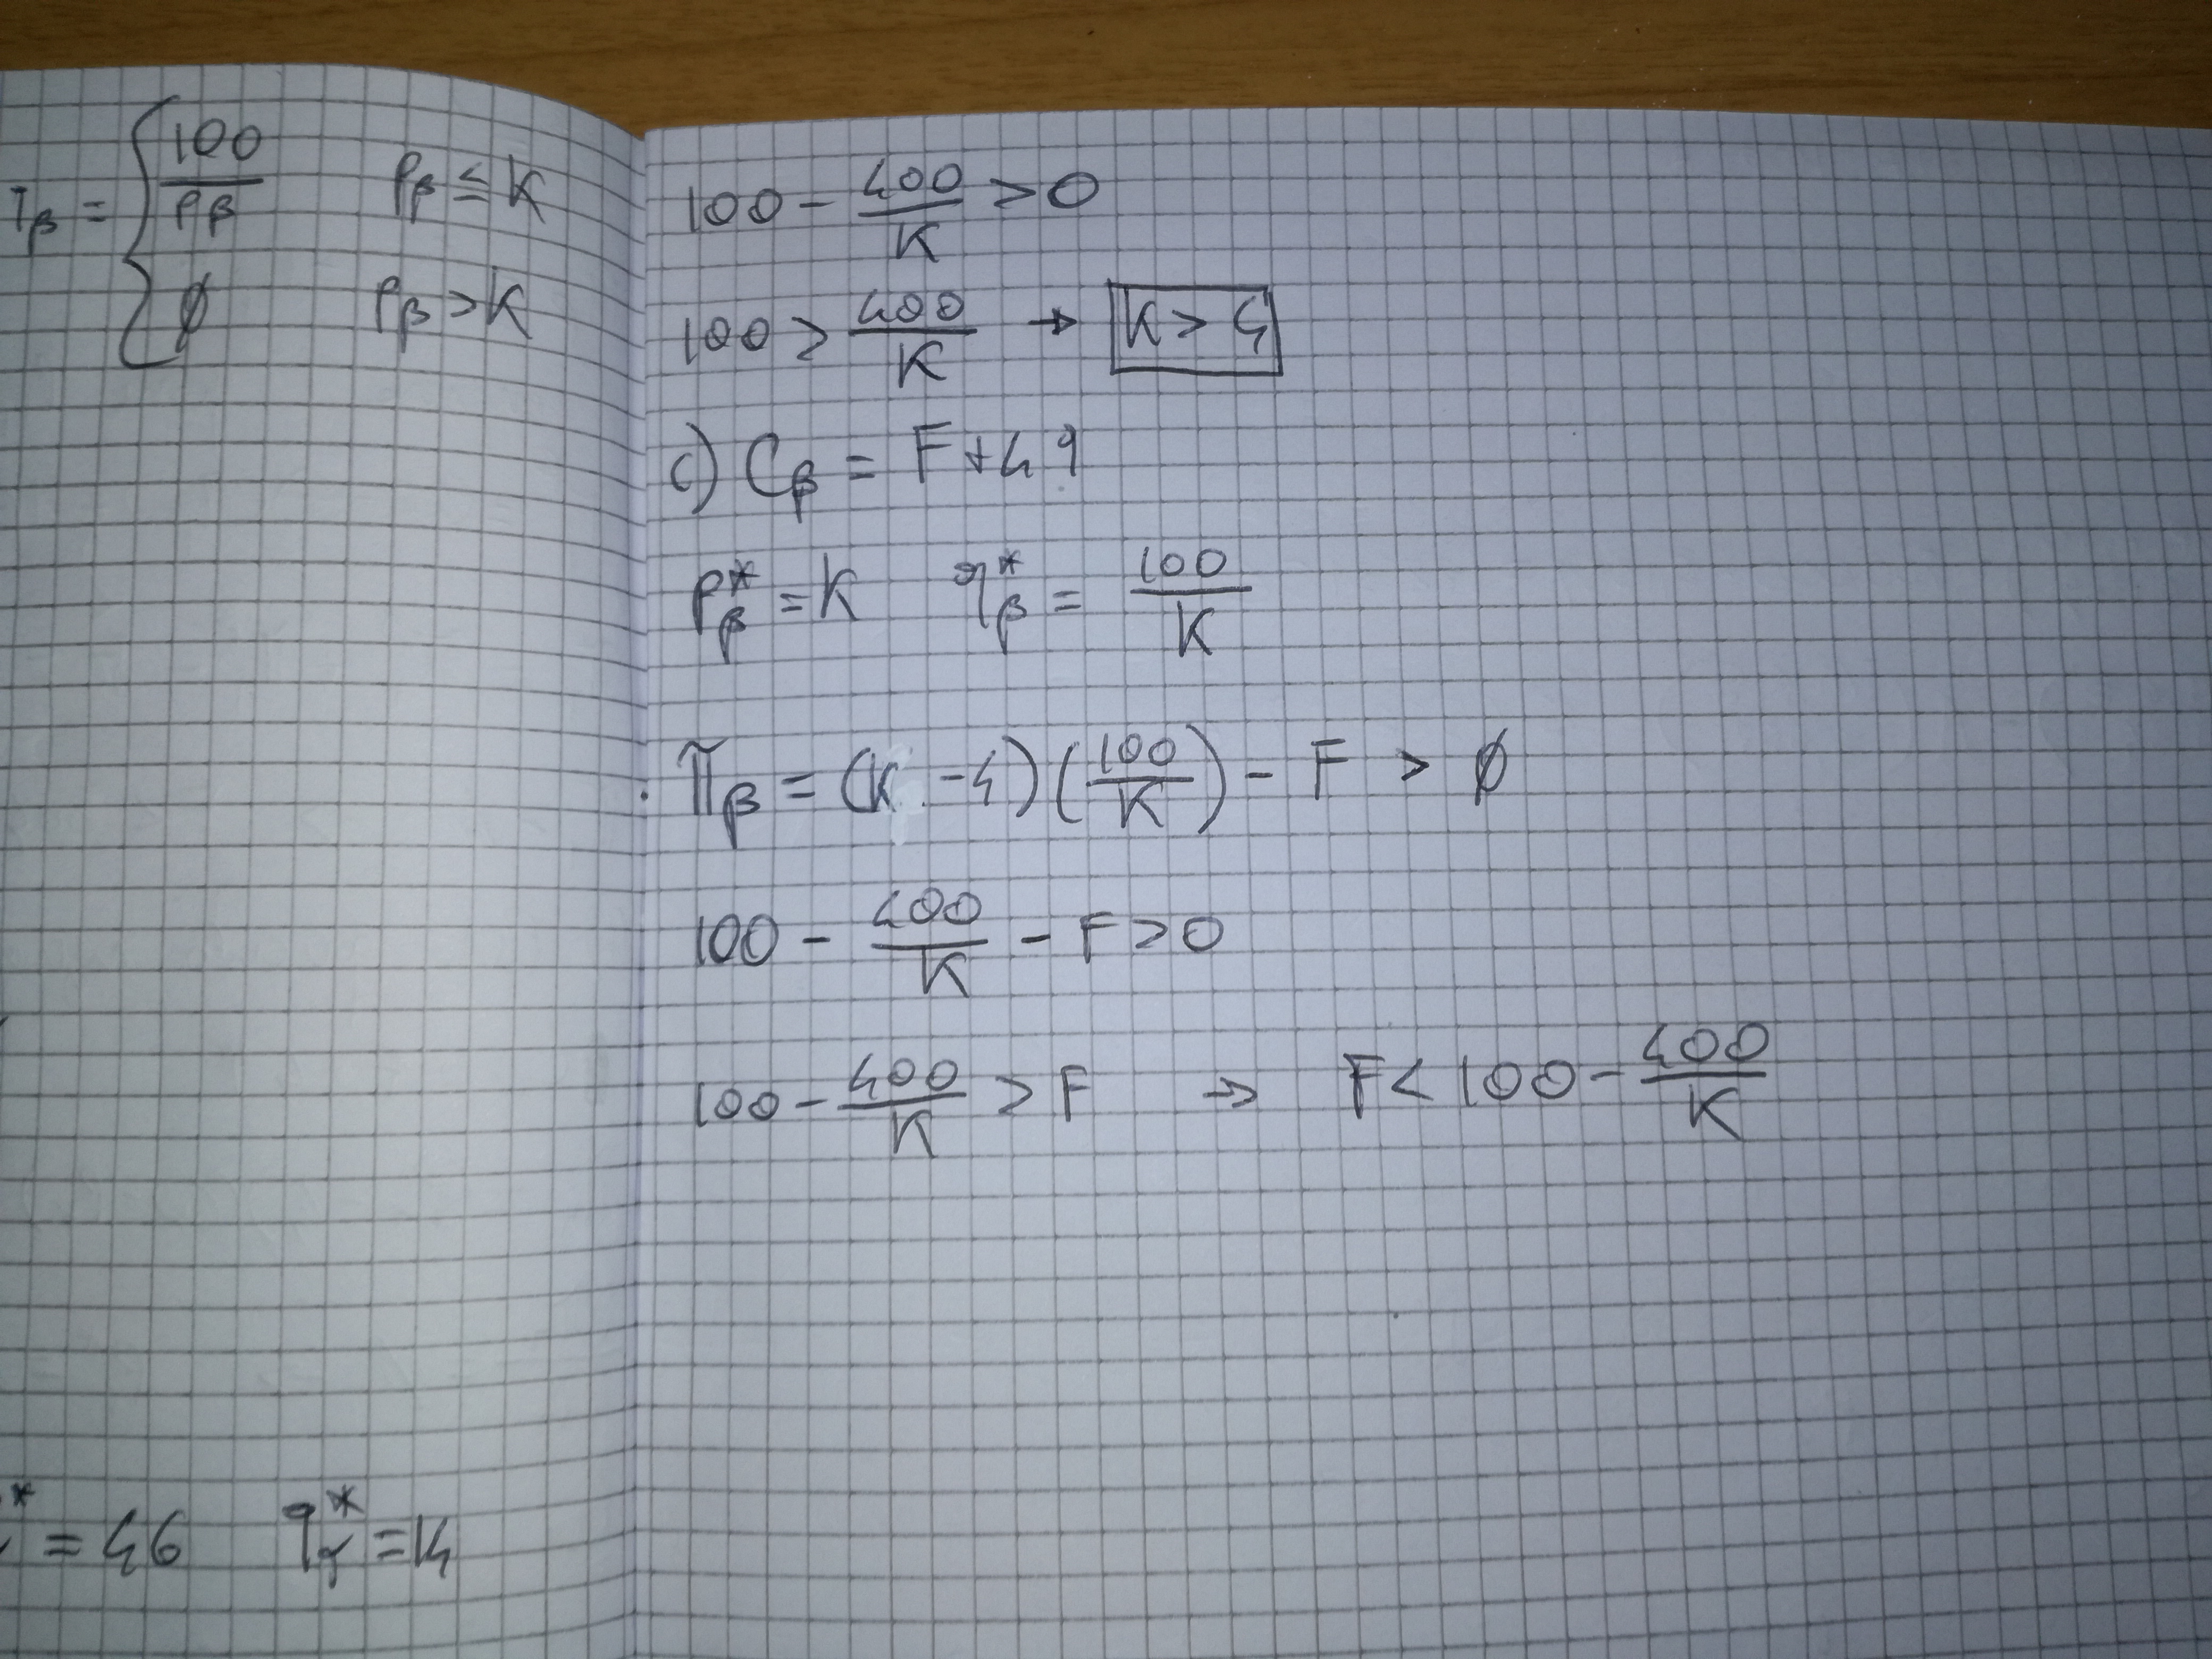 qβ = { 100/Pβ Pβ ≤ K
∅ Pβ > K
* = 46 qγ* = 14
100 - 400/K > 0
100 > 400/K → K > 4
c) Cβ = F + 4q
Pβ* = K qβ* = 100/K
πβ = (K - 4)(100/K) - F > ∅
100 - 400/K - F > 0
100 - 400/K > F → F < 100 - 400/K